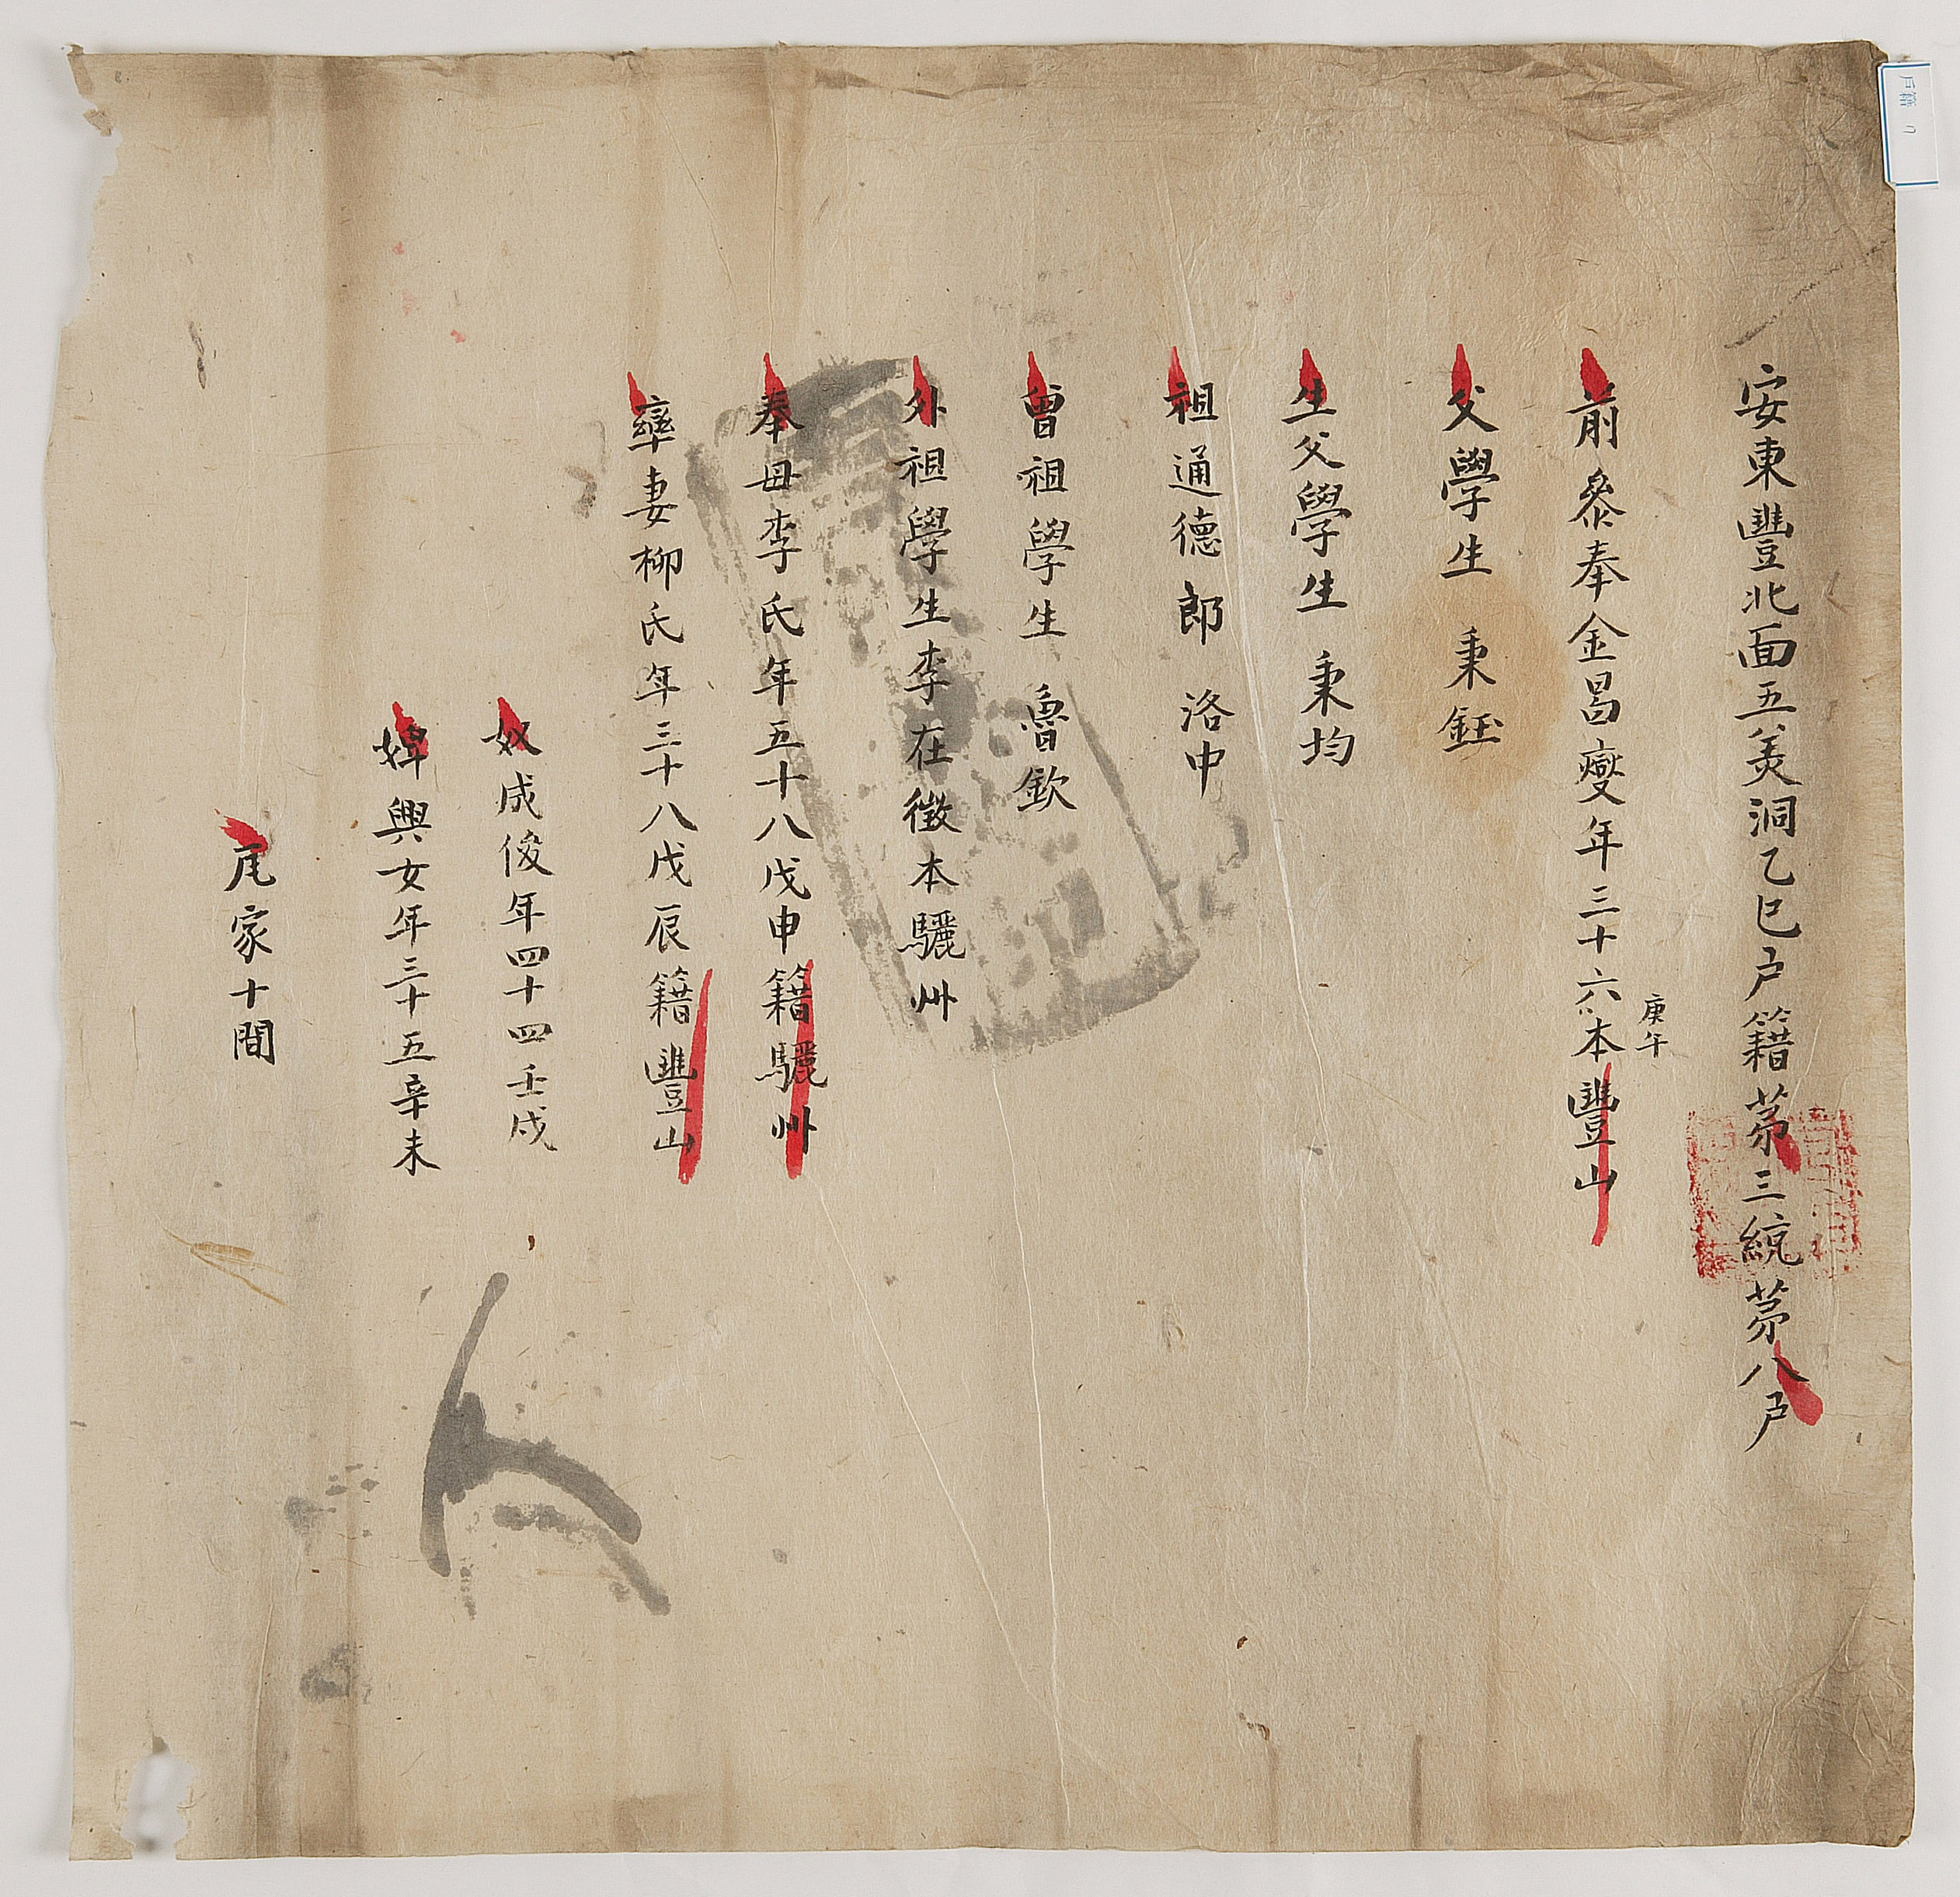 安東豐北面五美洞乙巳户籍茅三統茅八户
前參奉金昌燮年三十六庚午本豐山
父學生 秉鈺
生父學生 秉均
祖通德郎 洛中
曾祖學生 魯欽
外祖學生李在徵本驪州
奉母李氏年五十八戊申籍驪州
率妻柳氏年三十八戊辰籍豐山
奴成俊年四十四壬戌
婢興女年三十五辛未
瓦家十間
户籍 7